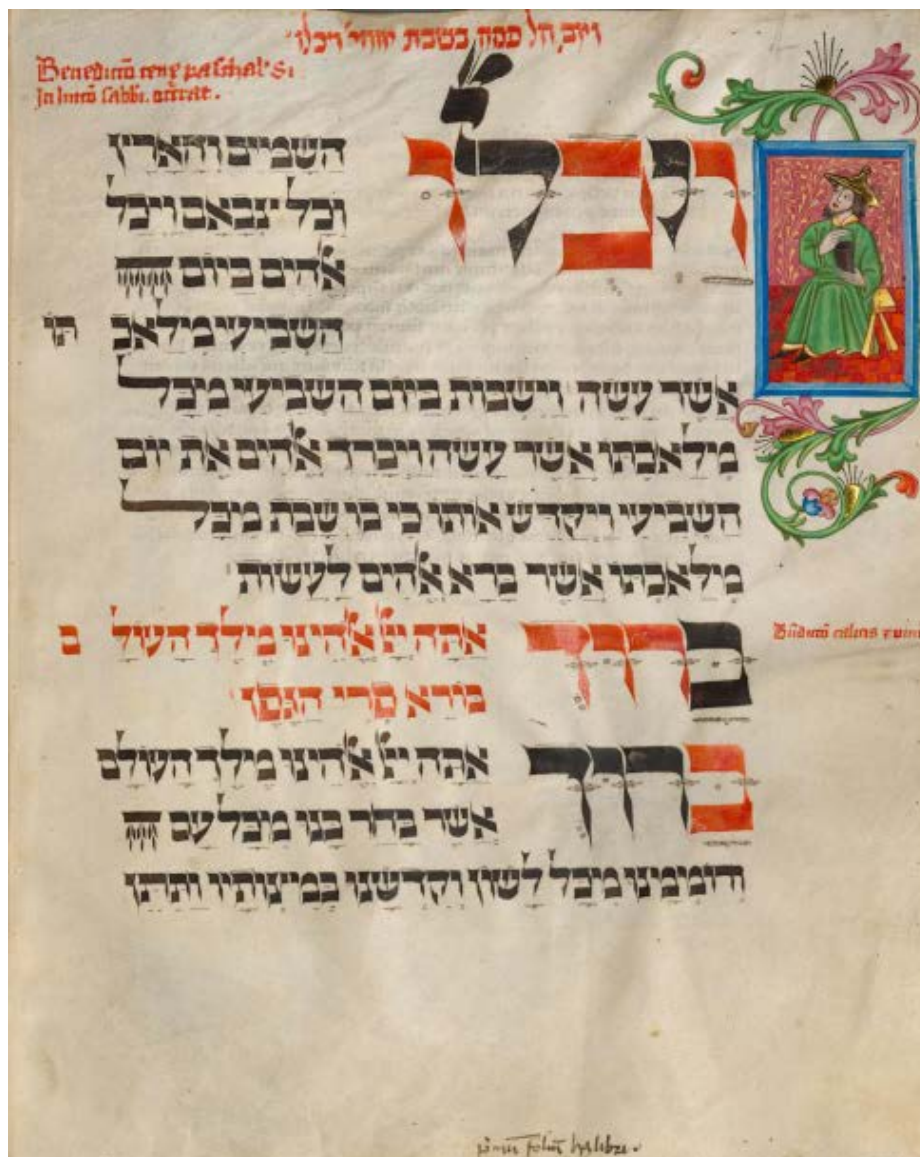 ויום חל פסח בשבת יותר ויכלו
Benedictio cene paschalis. Si
in hunc sabbi. occurrat.
ויכלו
השמים והארץ
וכל צבאם ויכל
אהים ביום
השביעי מלאכ תו
אשר עשה וישבות ביום השביעי מכל
מלאכתו אשר עשה ויברך אהים את יום
השביעי ויקדש אותו כי בו שבת מכל
מלאכתו אשר ברא אהים לעשות
ברוך אתה ייי אהינו מלך העול ם
בורא פרי הגפן
ברוך אתה ייי אהינו מלך העולם
אשר בחר בנו מכל עם
ורוממנו מכל לשון וקדשנו במצותיו ותתן